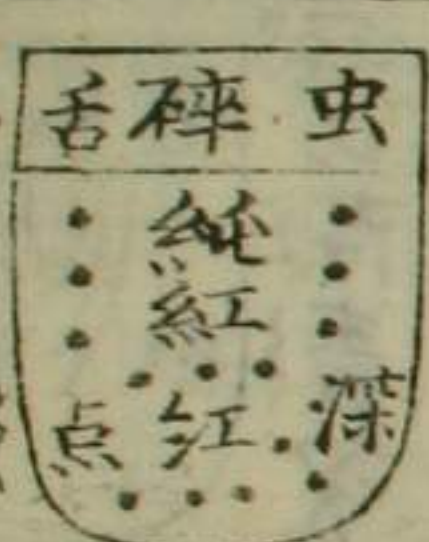 虫碎舌
純紅
深红点